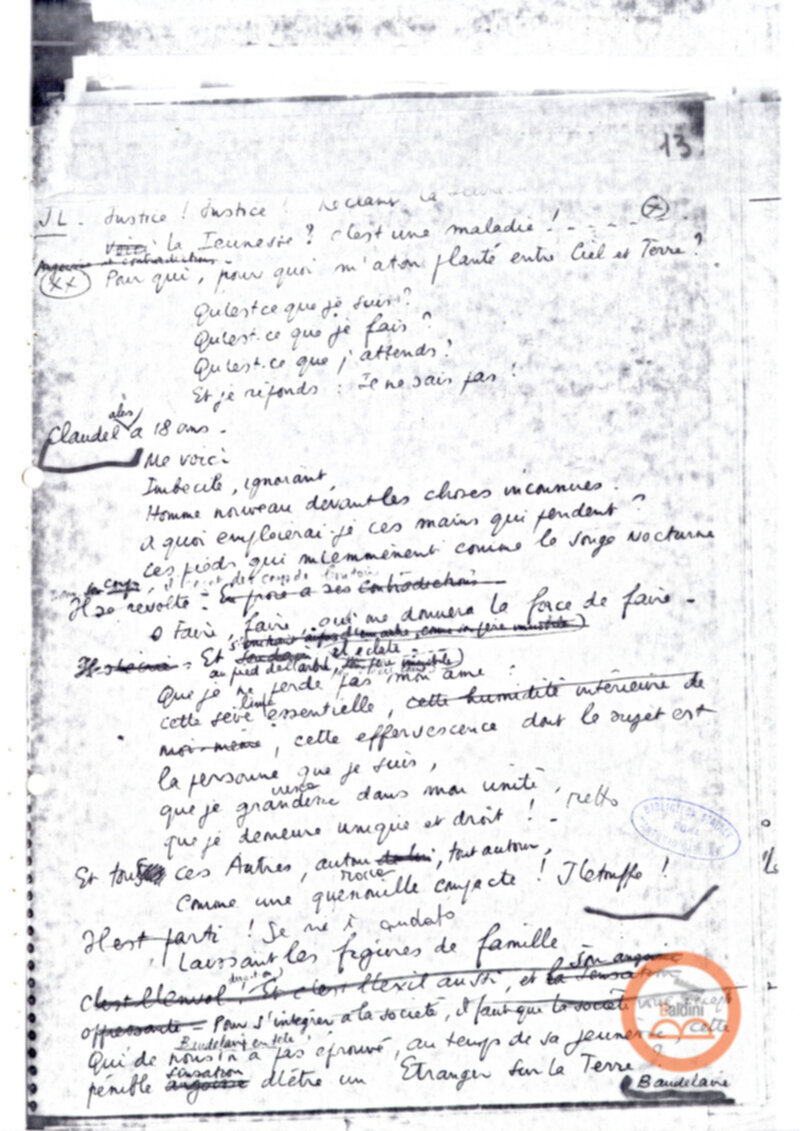 13
JL - Justice ! Justice !
(x)
voici la Jeunesse ? c'est une maladie ! - - - - -
Angoisse et contradictions -
(xx) Pour qui, pour quoi m'a ton planté entre Ciel et Terre ?
Qu'est ce que je suis ?
Qu'est-ce que je fais ?
Qu'est-ce que j'attends ?
Et je réponds : Je ne sais pas !
Claudel a 18 ans -
Me voici
Imbécile, ignorant,
Homme nouveau devant les choses inconnues.
A quoi emploierai-je ces mains qui pendent ?
ces pieds qui m'emmènent comme le songe Nocturne
son corps,
Il se révolte - En proie à ses contradictions
O Faire, faire, qui me donnera la force de faire -
Et et éclate
au pied de l'arbre
Que je ne perde pas mon âme ?
cette sève essentielle, cette humidité intérieure de
moi-même, cette effervescence dont le sujet est
la personne que je suis,
que je grandisse dans mon unité,
que je demeure unique et droit ! -
BIBLIOTECA
Et tous ces Autres, autour de lui, tout autour,
Comme une quenouille compacte ! Il étouffe !
Il est parti ! Se ne è andato
Laissant les figures de famille
son angoisse
C'est l'Envol. Et c'est l'exil aussi, et la sensation
oppressante - Pour s'intégrer à la société, il faut que la société vous
Baudelaire en tête
Qui de nous n'a pas éprouvé, au temps de sa jeunesse, cette
sensation
pénible angoisse d'être un Etranger sur la Terre ?
Baudelaire
Baldini